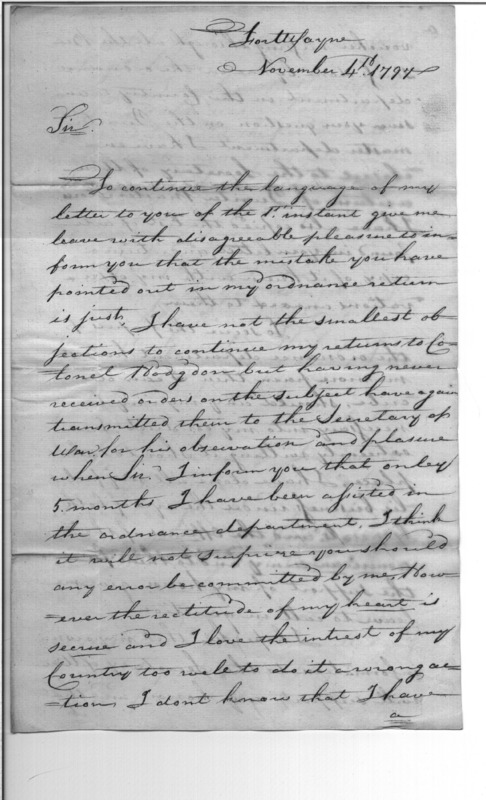 Fort Wayne
November 4th. 1797
Sir.
To continue the language of my
letter to you of the 1st. instant give me
leave with disagreeable pleasure to in=
form you that the mistake you have
pointed out in my ordnance return
is just. I have not the smallest ob
jections to continue my returns to Co-
lonel Hodgdon but having never
received orders on the subject have again
transmitted them to the Secretary of
War for his observation and plasure
when Sir. I inform you that onley
5 months I have been assisted in
the ordnance department, I think
it will not surprise you should
any error be committed by me, How=
=ever the rectitude of my heart is
secrue and I love the intrest of my
Country too wele to do it a wrong ac=
=tion I dont know that I have
a